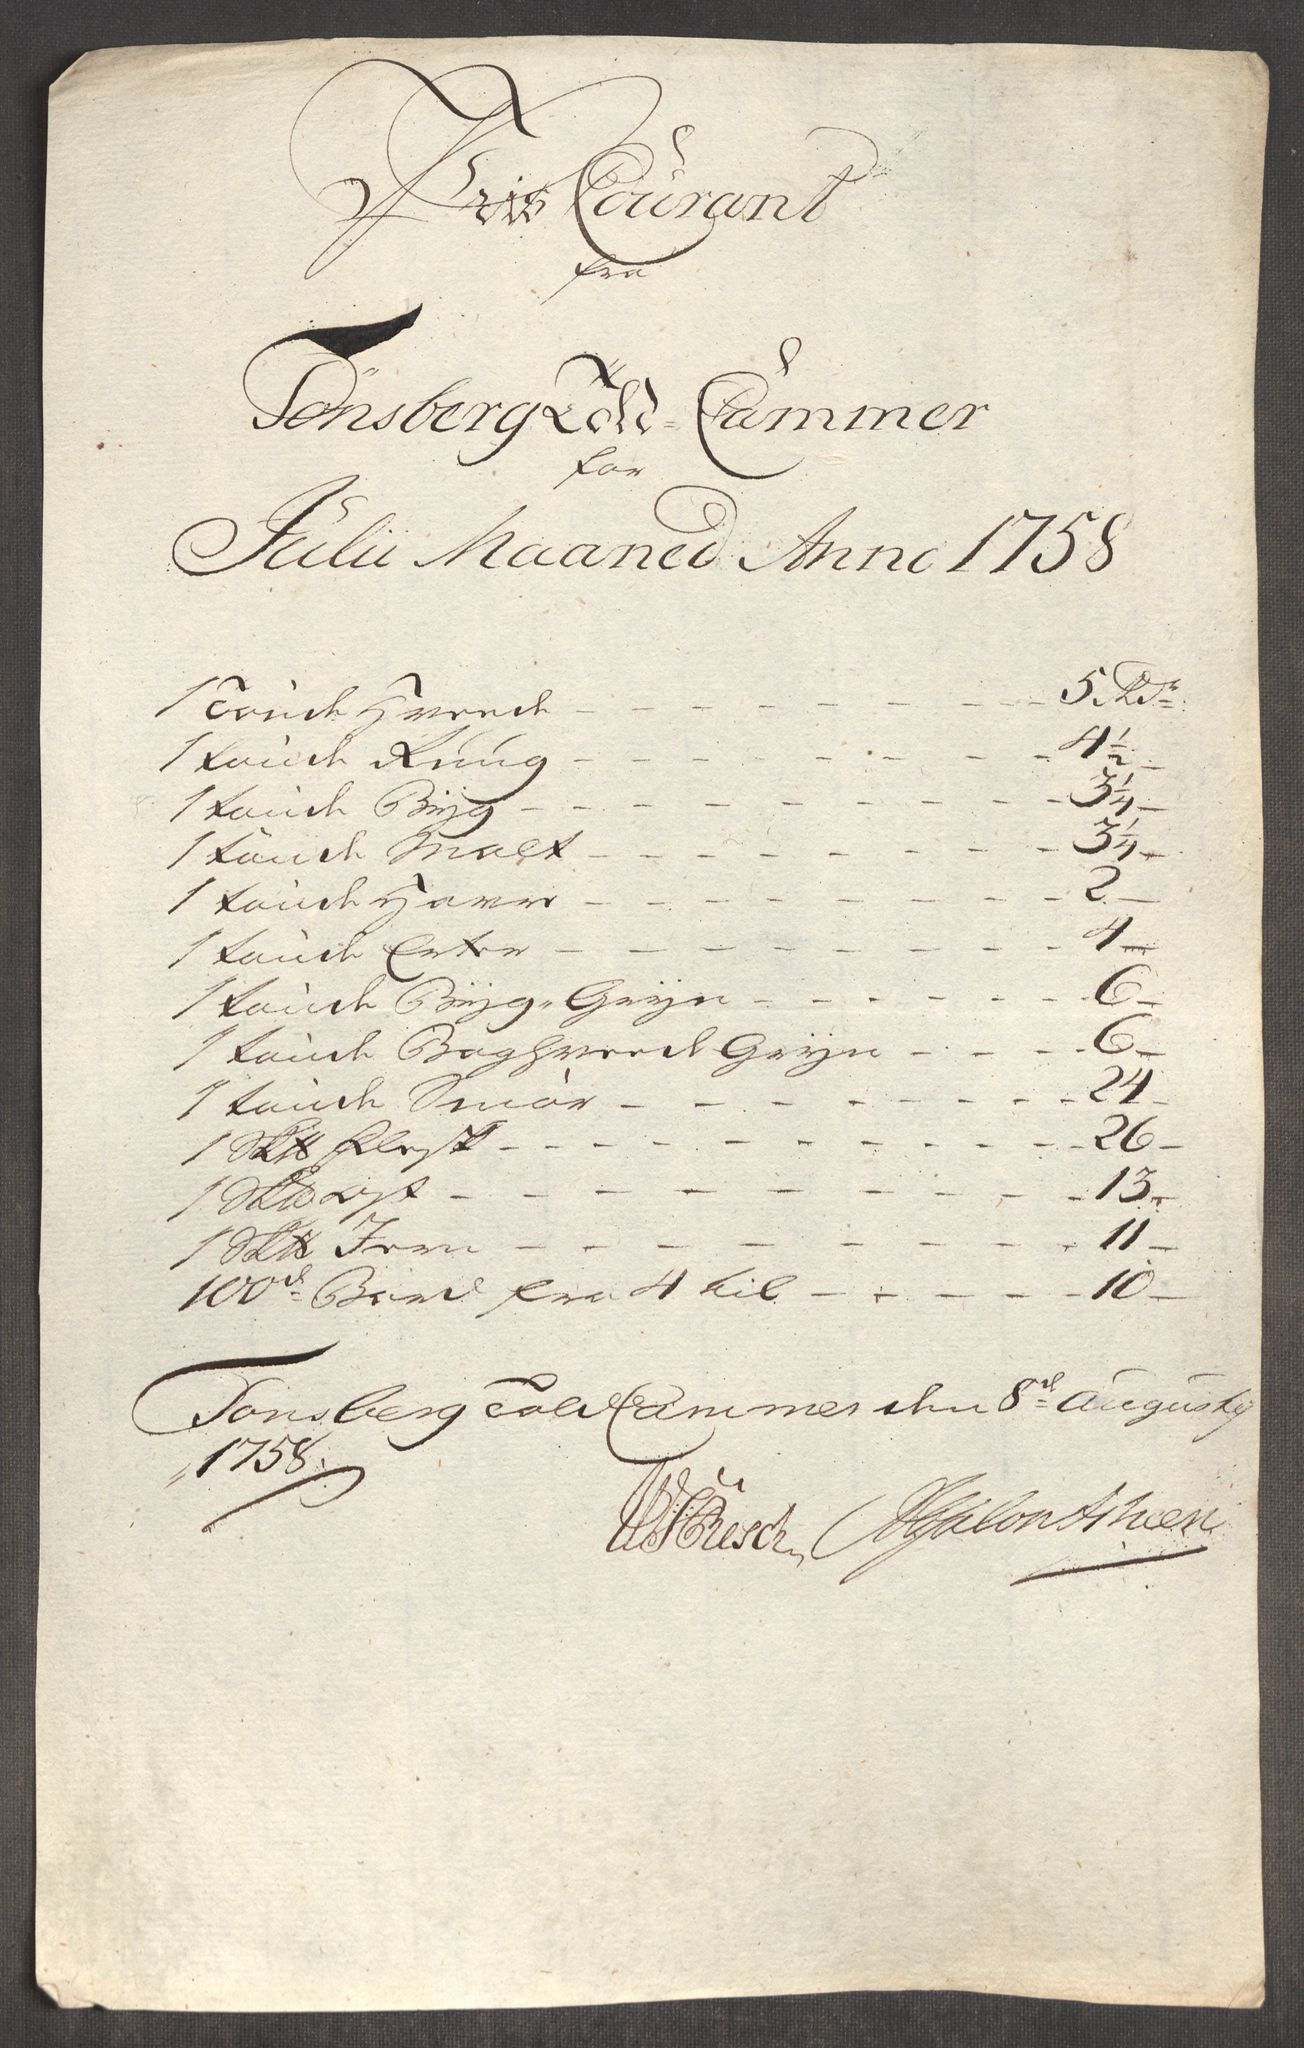 Priis Courant
fra
Tönsberg Told-Cammer
for
Julii Maaned Anno 1758
1 Tönde Hveede - - - 5 Rdr
1 tönde Rüug - - - 4 1/2 -
1 tönde Byg - - - 3 1/4 -
1 tönde Malt - - - 3 1/4 -
1 tönde Havre - - - 2 -
1 tönde Erter - - - 4 -
1 tönde Byg-Gryn - - - 6 -
1 tönde Boghveede Gryn - - - 6 -
1 tönde Smör - - - 24 -
1 Sk℔ Flesk - - - 26 -
1 Sk℔ - - - 13 -
1 Sk℔ Jern - - - 11 -
100de Bord fra 4 til - - - 10 -
Tonsberg Told Cammer den 8de Augusty
1758